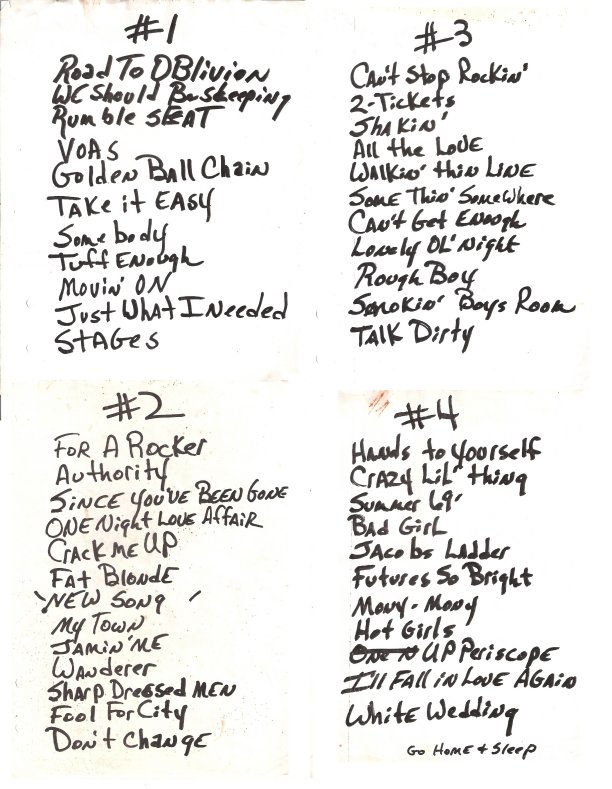 #1
Road To Oblivion
WC Should B Sleeping
Rumble SEAT
VOAs
Golden Ball Chain
TAKE it EASY
Somebody
Tuff Enough
Movin' ON
Just What I Needed
STAGES
#2
FOR A Rocker
Authority
SINCE YOU'VE BEEN GONE
ONE Night LOVE AFFAIR
CRACK ME UP
FAT BLONDE
" NEW SONG "
My TOWN
JAMIN' ME
WANDERER
SHARP DRESSED MEN
Fool For City
DON'T CHANGE
#3
CAN'T Stop Rockin'
2-Tickets
SHAKIN'
All the LOVE
WALKIN' thin LINE
SOME THIN' SomeWhere
CAN'T Get ENough
LONELY OL' Night
ROUGH BOY
SMOKIN' BOYS ROOM
TALK Dirty
#4
HANDS to YOURSELF
CRAZY Lil' thing
SUMMER 69'
BAD GIRL
JACOBS LADDER
FUTURES SO BRIGHT
MONY-MONY
Hot Girls
UP PERISCOPE
I'll FALL in LOVE AGAIN
White Wedding
GO HOME + Sleep